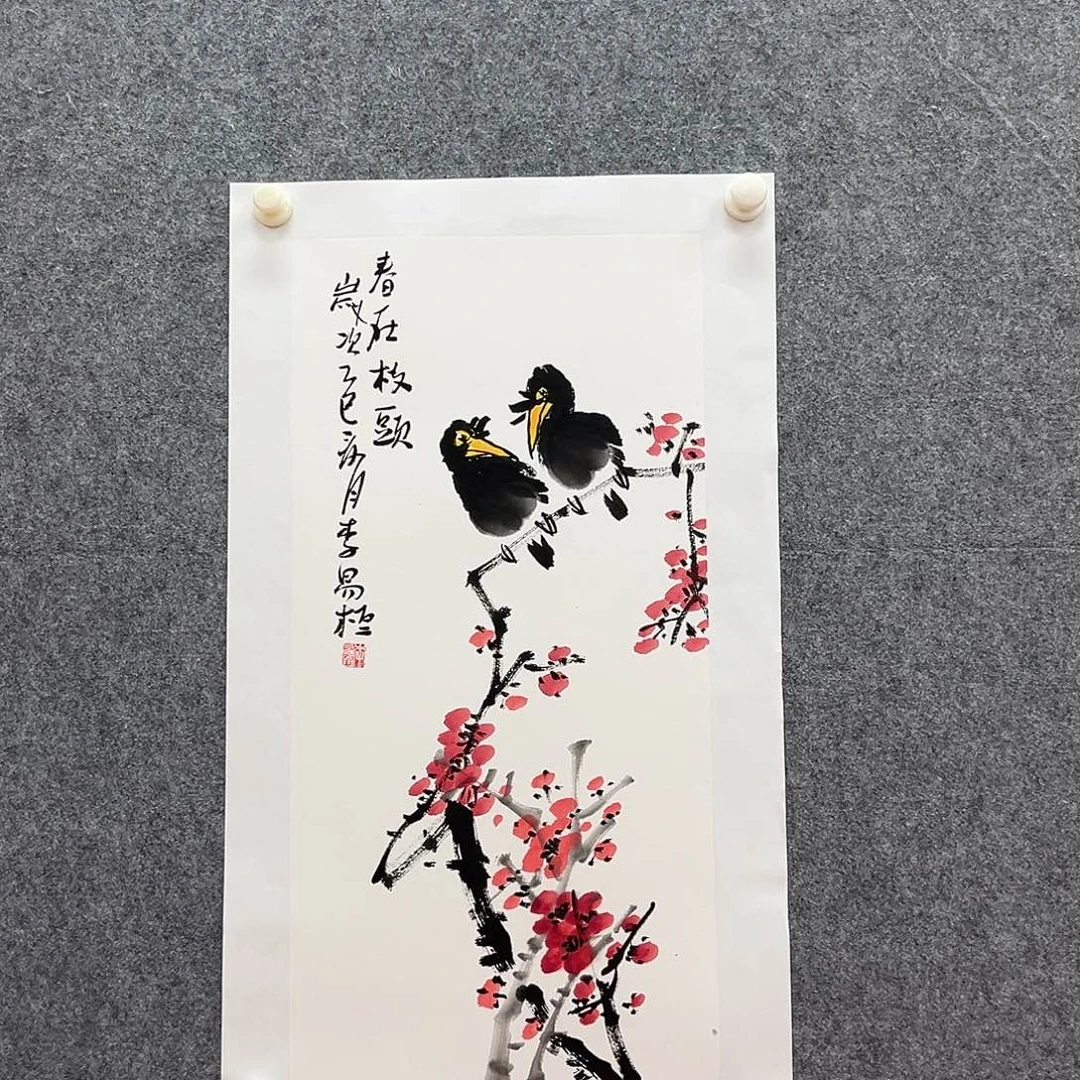 春在枝頭
歲次乙巳 月李易桓